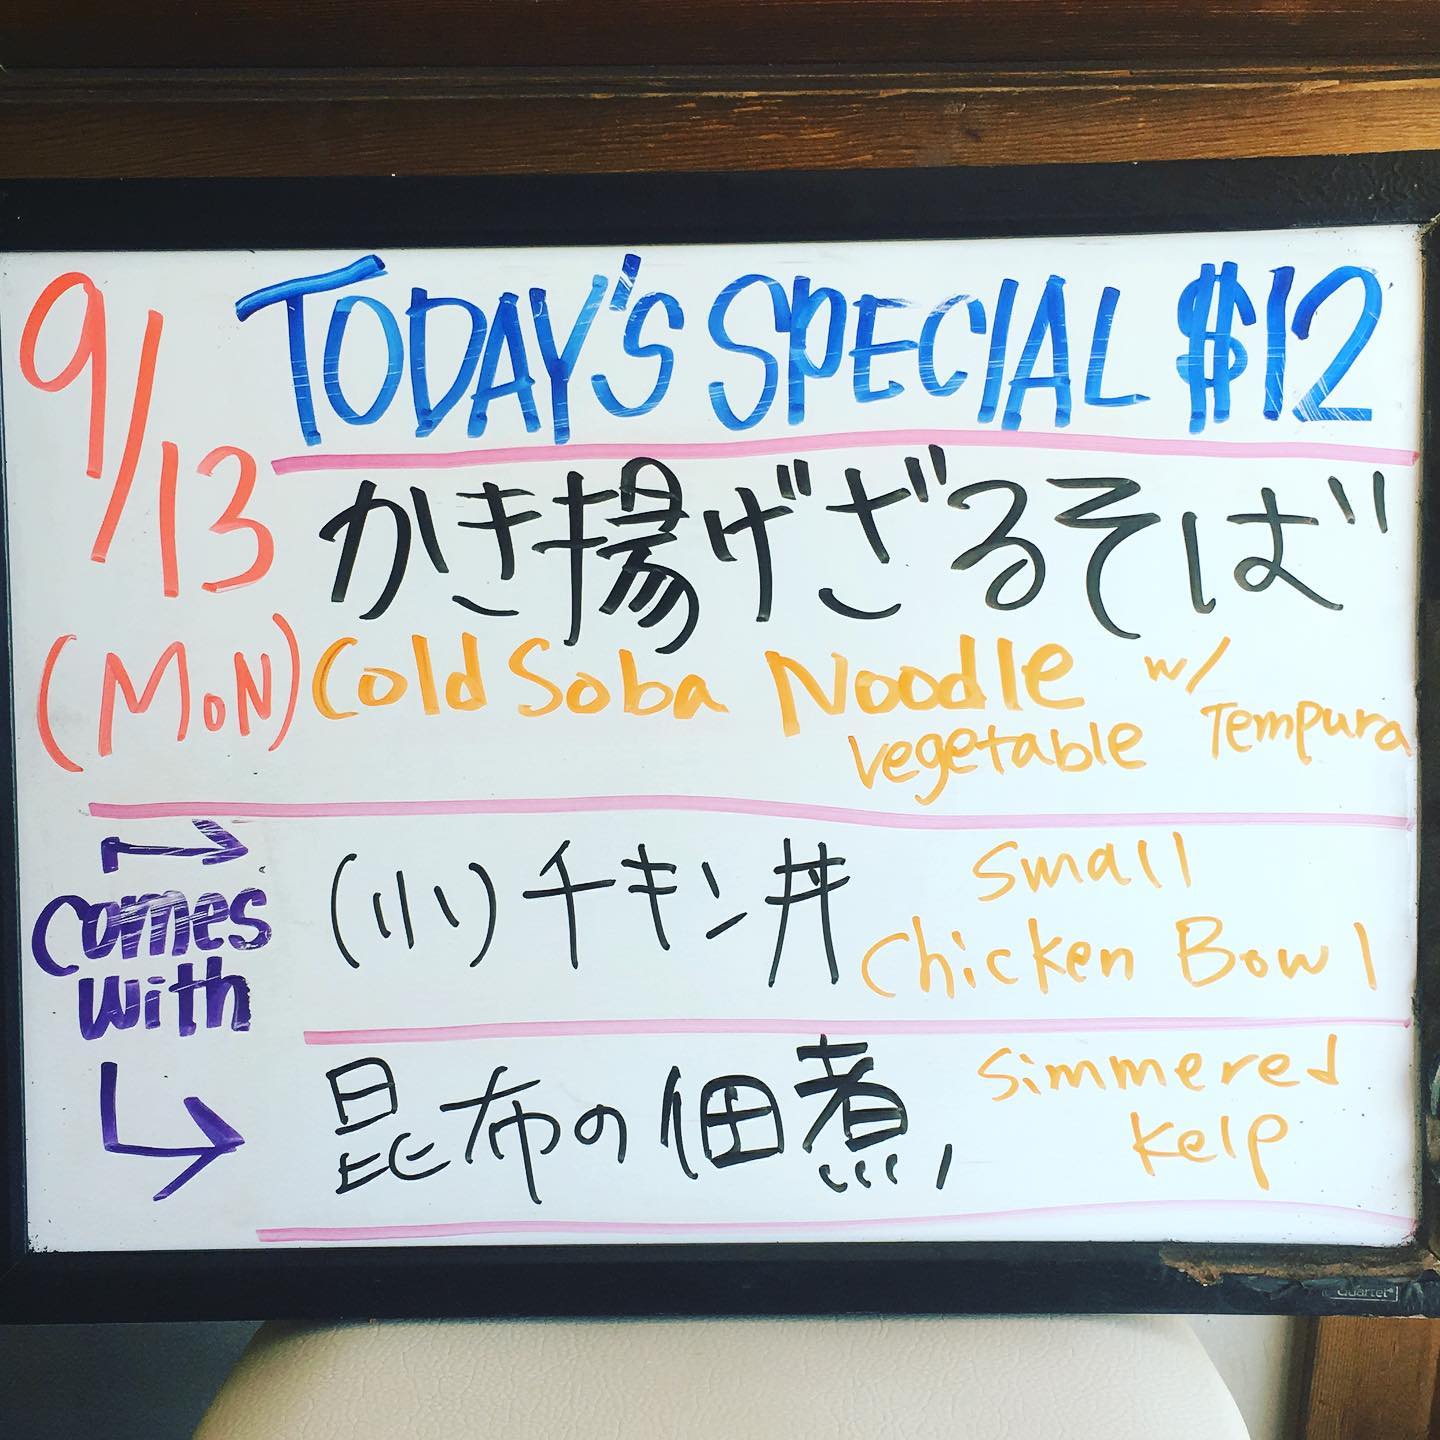 9/13
(MON)
TODAY'S SPECIAL $12
かき揚げざるそば
Cold Soba Noodle w/
vegetable Tempura
comes
with
(小)チキン丼
small
chicken Bowl
昆布の佃煮,
simmered
kelp
Quartet